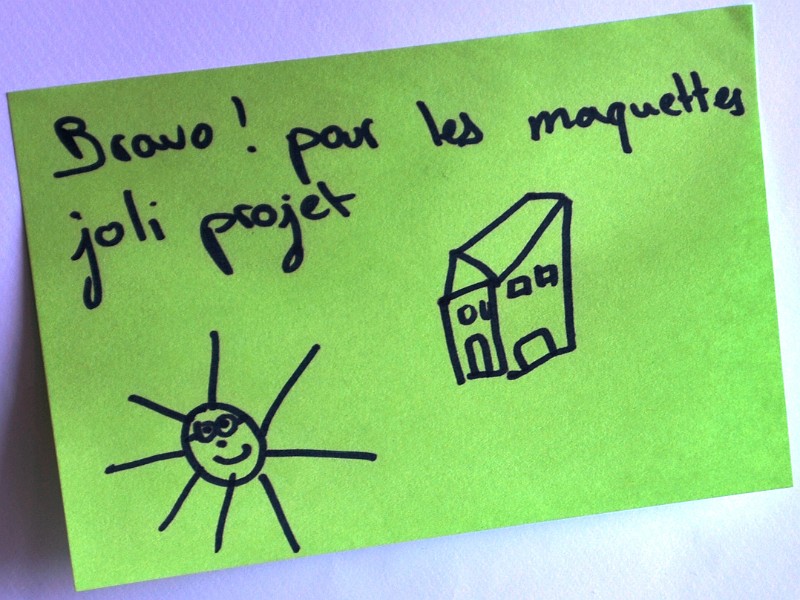 Bravo! pour les maquettes
joli projet